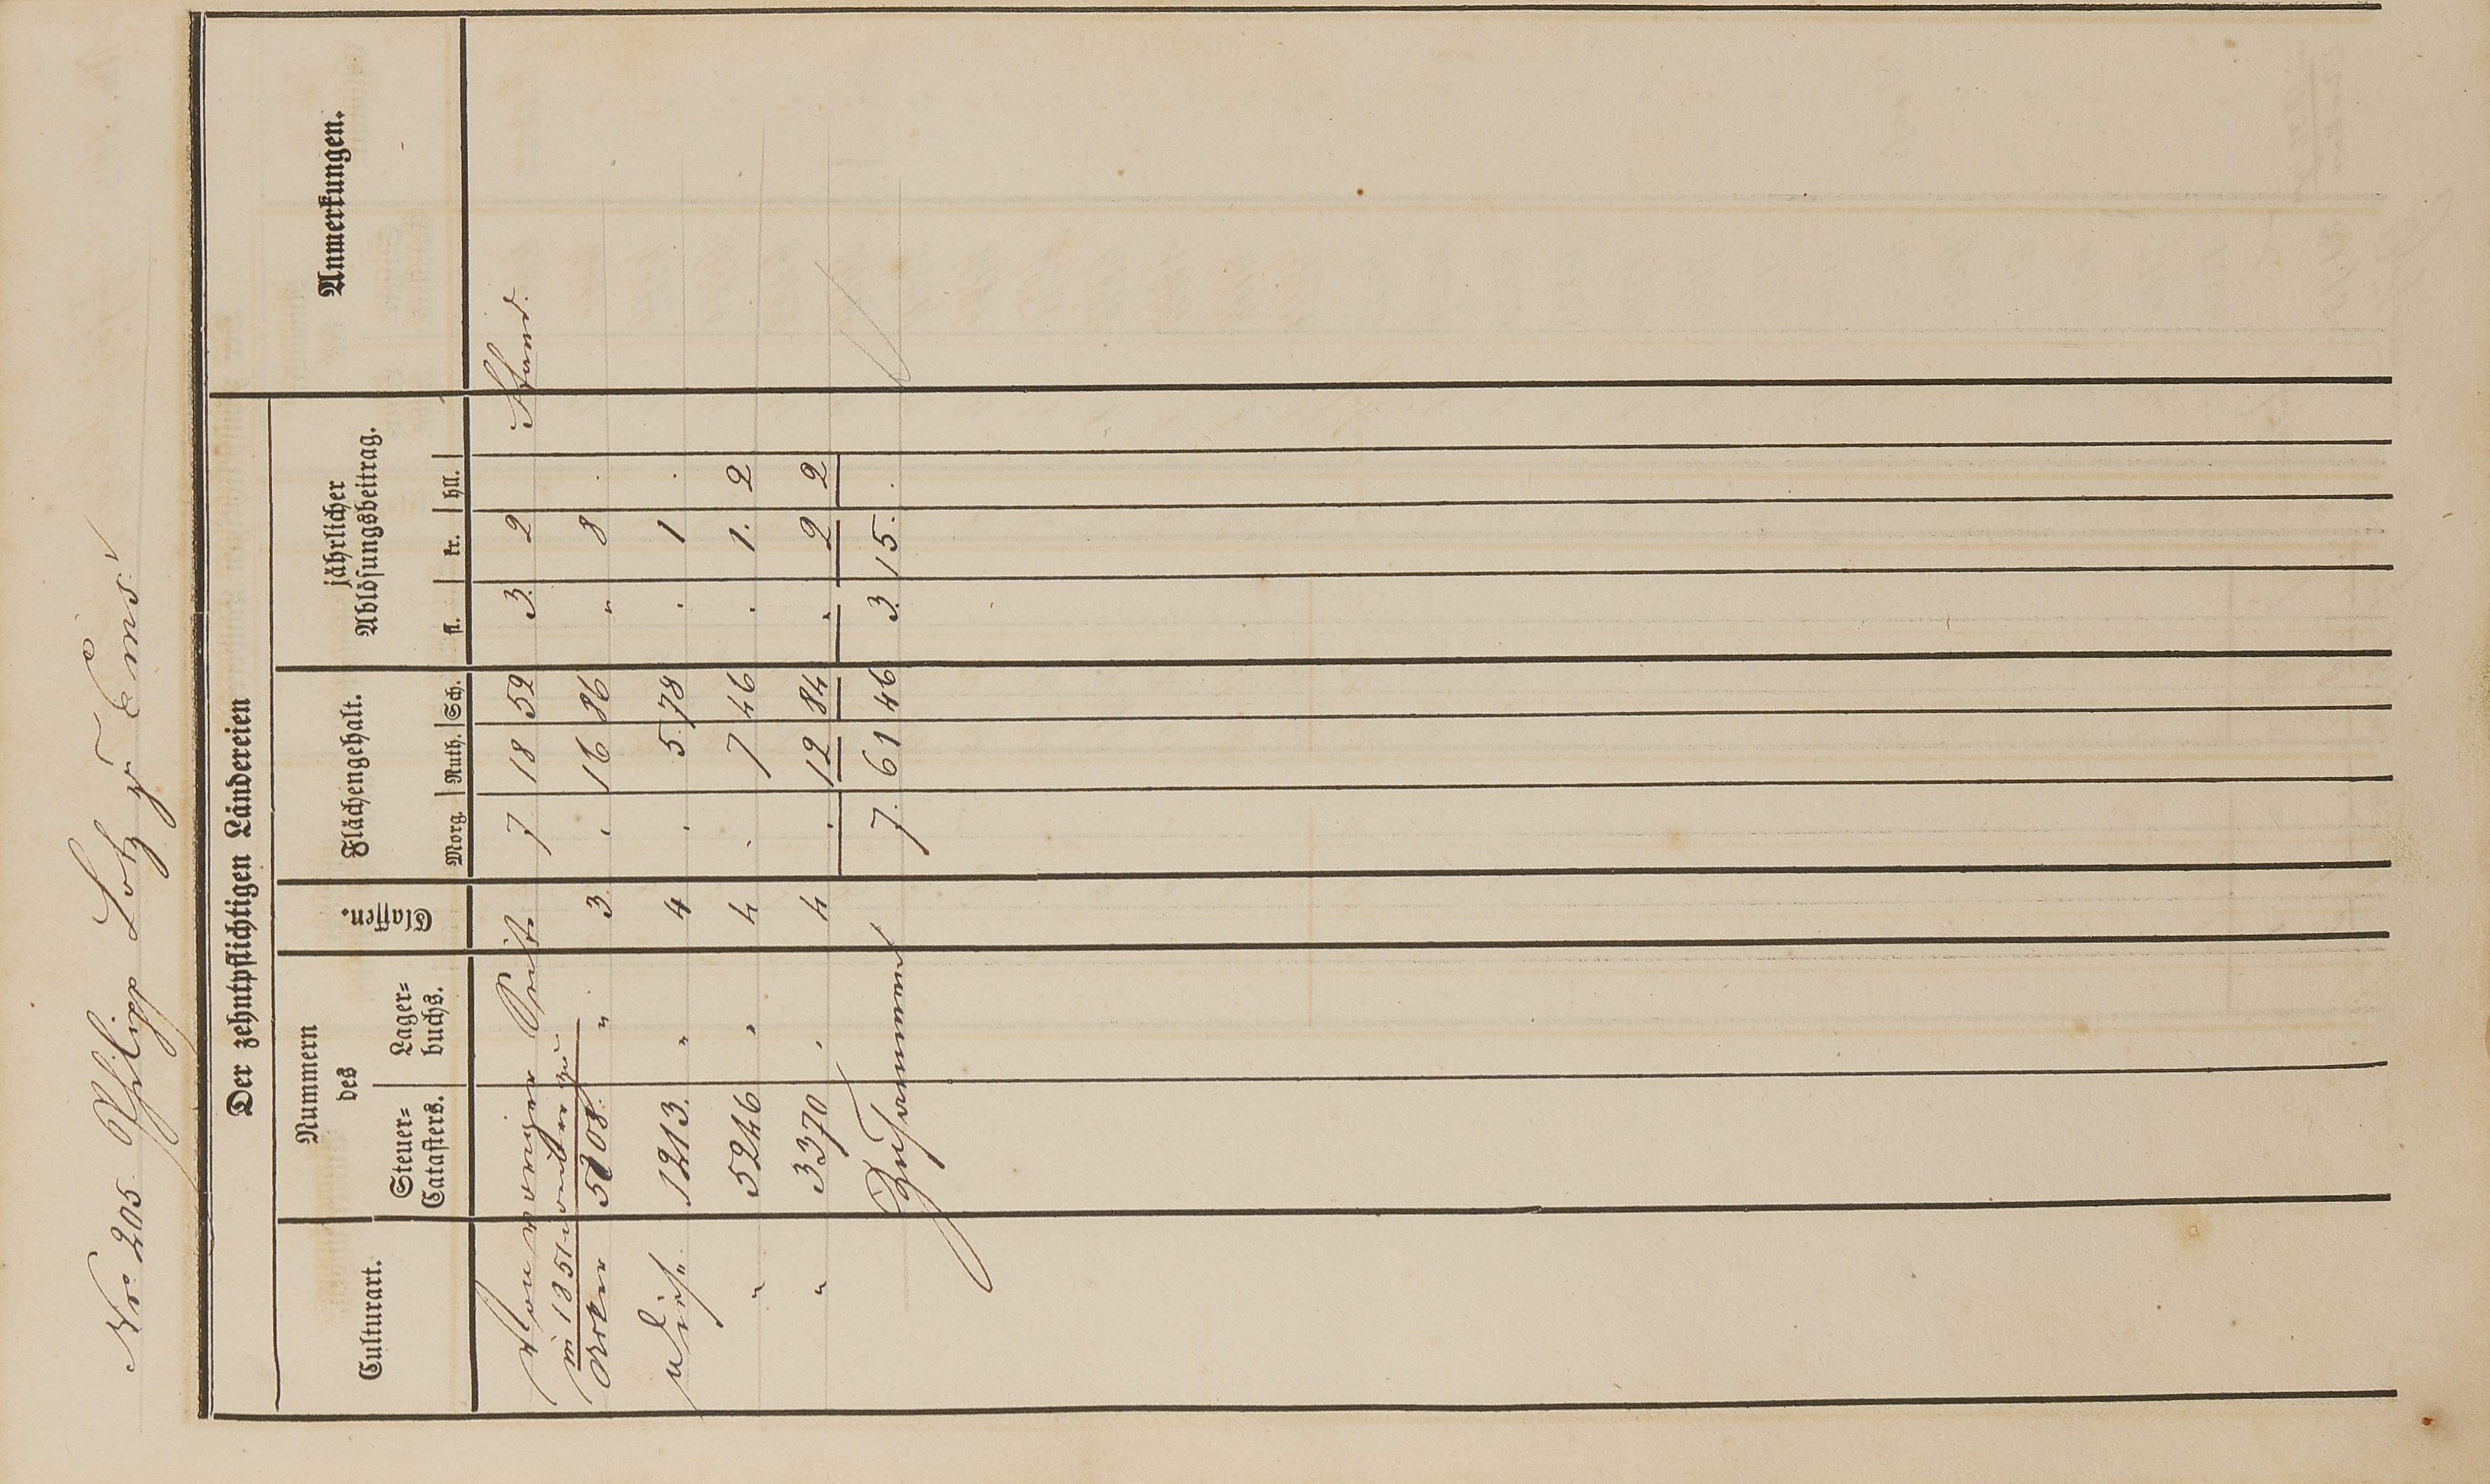 Nro 205. Philipp Lotz zu Ems
Der zehntpflichtigen Ländereien
Anmerkungen.
Culturart.
Nummern
des
Steuer=
Catasters.
Lager=
buchs.
Classen.
Flächengehalt.
Morg. Ruth. Sch.
jährlicher
Ablösungsbeitrag.
fl. kr. hll.
Von voriger Seite 7 18 52 3. 2
in 1851
Acker 5208. " 3. 16 86 " 8 .
Wies. 1213. " 4 . 5. 78 . 1 .
" 5246 " 4 . 7 46 . 1. 2
" 3370 . 4 . 12 84 . 2 2
Zusammen 7. 61 46 3. 15. .